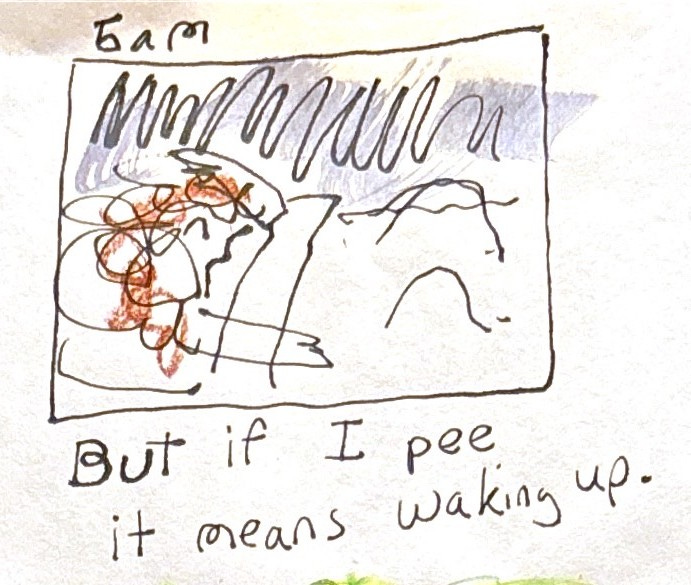 6am
But if I pee
it means waking up.